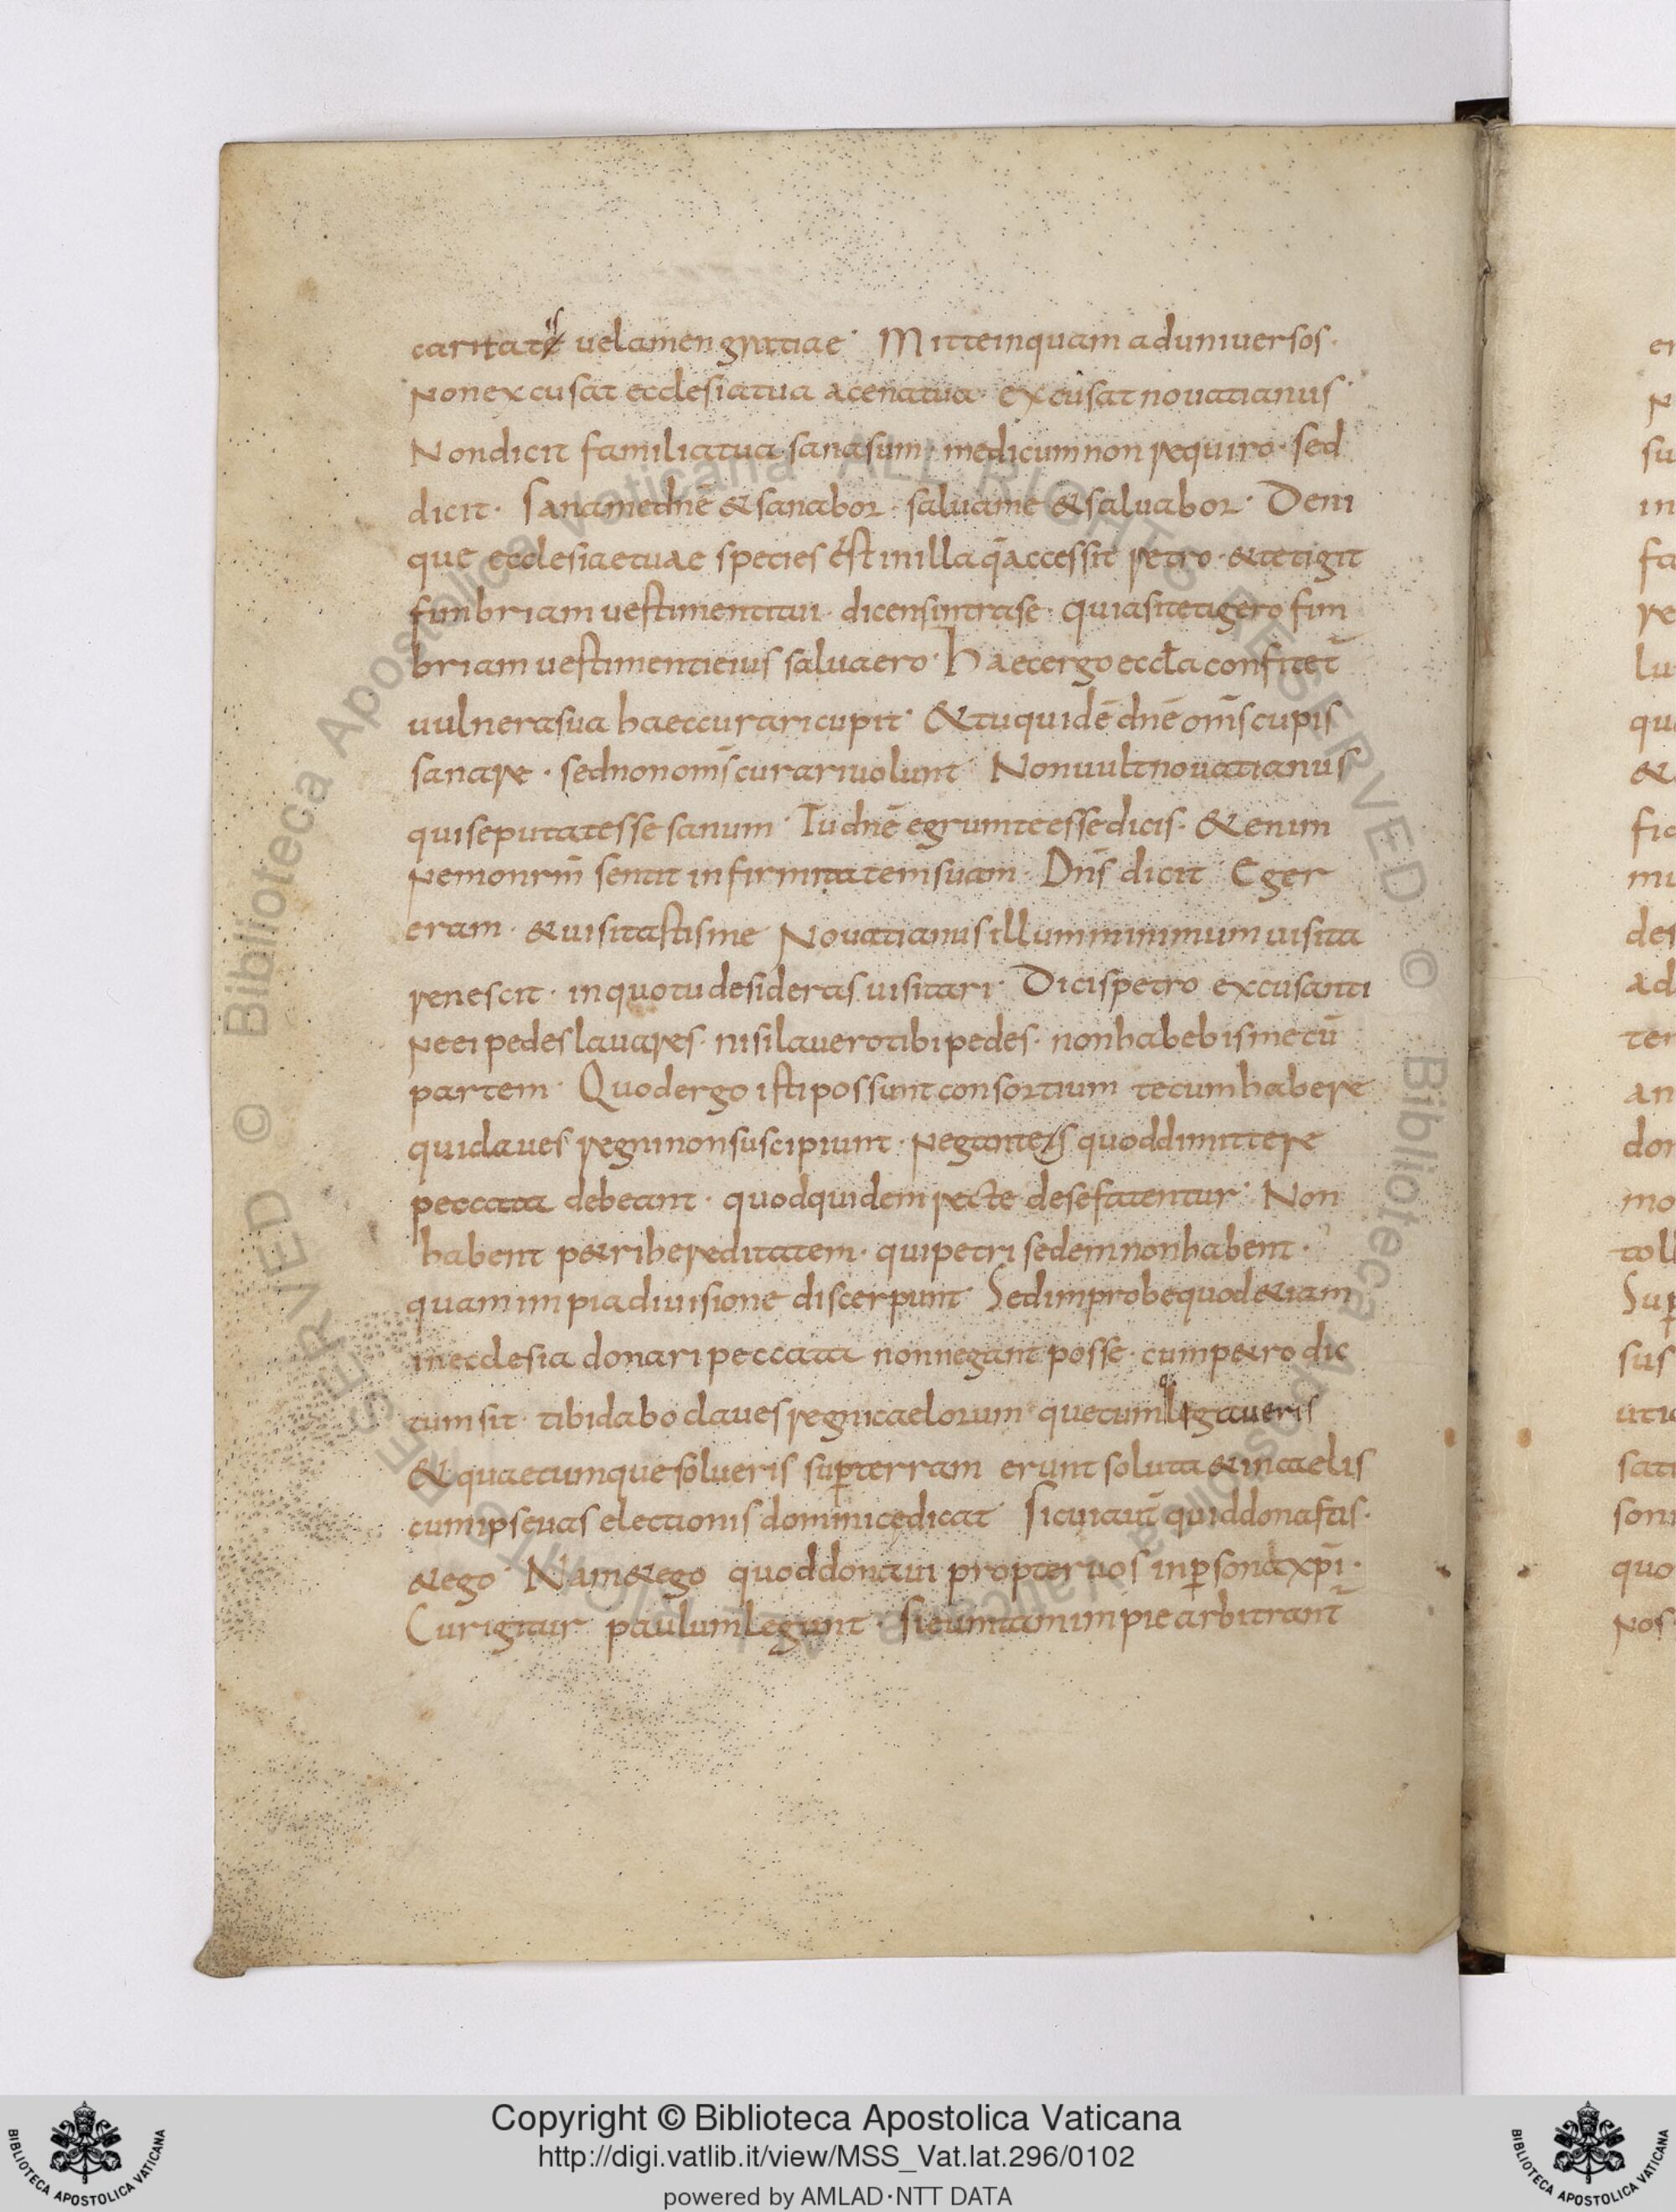 caritatis uelamen gratiae· Mitte inquam ad uniuersos·
Non excusat ecclesia tua a cena tua· excusat nouatianus·
Non dicit familia tua· sana sum· medicum non requiro· sed
dicit· Sana me dnē & sanabor· salua me & saluabor· Deni
que ecclesiae tuae species est in illa q̄ accessit retro· & tetigit
fimbriam uestimenti tui· dicens intra se· quia si tetigero fim
briam uestimenti eius salua ero· Haec ergo eccl̄a confitet̄
uulnera sua haec curari cupit· & tu quidē dnē om̄s cupis
sanare· sed non om̄s curari uolunt· Non uult nouatianus
qui se putat esse sanum· Tu dnē egrum te esse dicis· & enim
nemo nrm̄ sentit infirmitatem suam· Dns̄ dicit Eger
eram· & uisitastis me Nouatianus illum minimum uisita
re nescit· in quo tu desideras uisitari· Dicis petro excusanti
ne ei pedes lauares· nisi lauero tibi pedes· non habebis mecū
partem· Quod ergo isti possunt consortium tecum habere
qui claues regni non suscipiunt· negantes quod dimittere
peccata debeant· quod quidem recte de se fatentur· Non
habent p&ri hereditatem· qui petri sedem non habent·
quam impia diuisione discerpunt· Sed improbe quod &iam
in ecclesia donari peccata non negant posse· cum p&ro dic
tum sit· tibi dabo claues regni caelorum· quecumq· ligaueris
& quaecumque solueris sup̄ terram erunt soluta & in caelis
cum ipse uas electionis dominicę dicat Si cui aut̄ quid donastis·
& ego· Nam & ego quod donaui propter uos in p̄sona xp̄i·
Cur igitur paulum legunt· si eum tam impie arbitrant̄
Copyright © Biblioteca Apostolica Vaticana
http://digi.vatlib.it/view/MSS_Vat.lat.296/0102
powered by AMLAD·NTT DATA